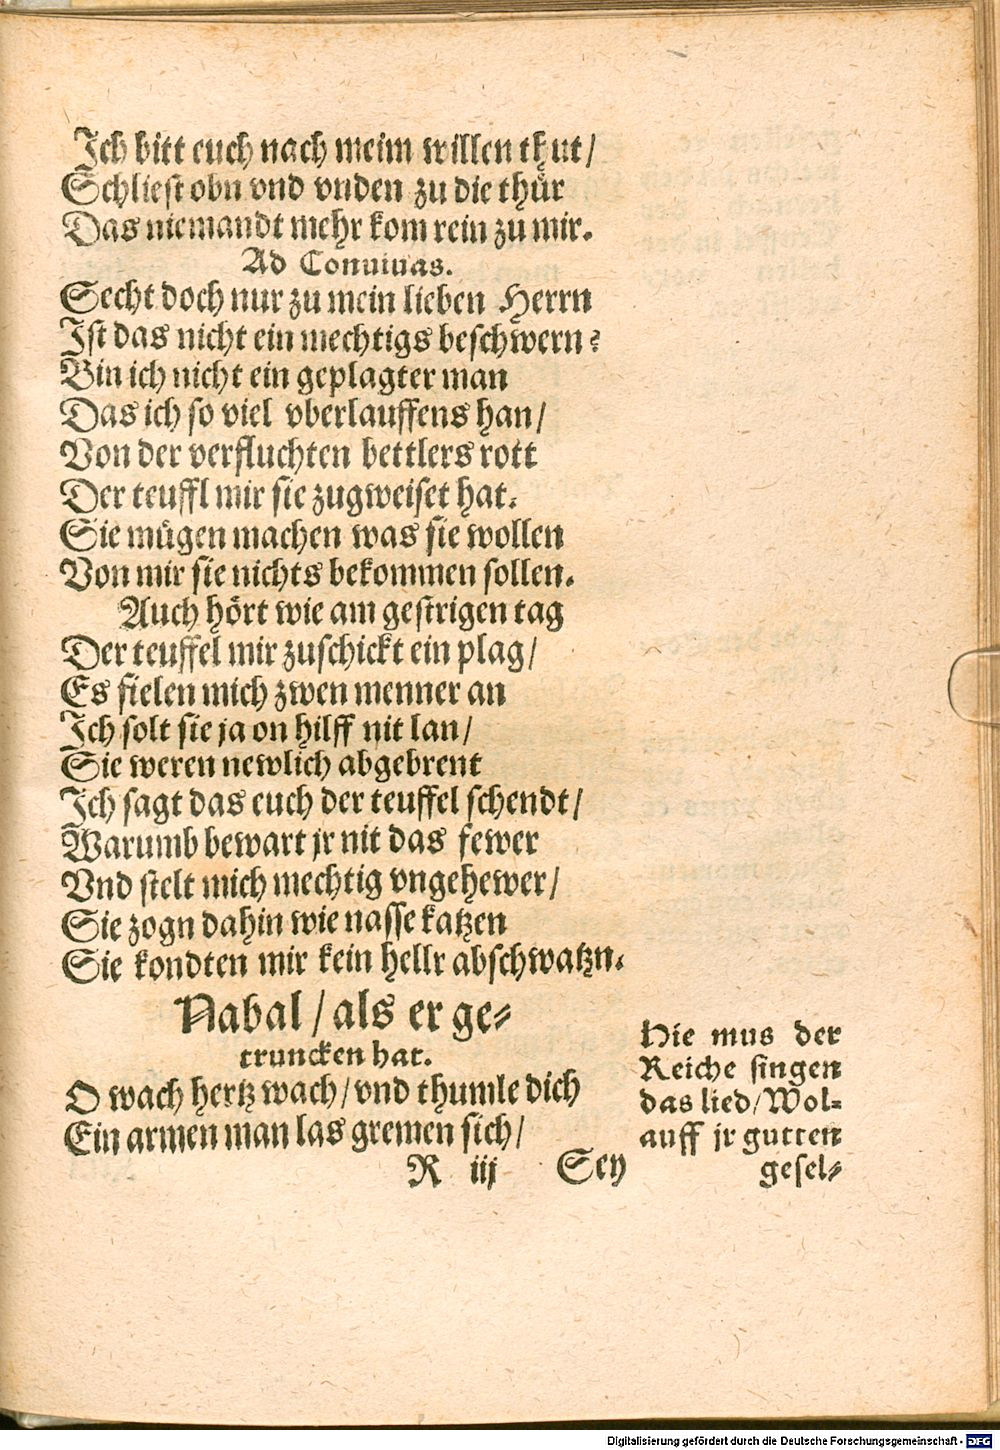 Ich bitt euch nach meim willen thut/
Schliest obn vnd vnden zu die thür
Das niemandt mehr kom rein zu mir.
Ad Conuiuas.
Secht doch nur zu mein lieben Herrn
Ist das nicht ein mechtigs beschwern?
Bin ich nicht ein geplagter man
Das ich so viel vberlauffens han/
Von der verfluchten bettlers rott
Der teuffl mir sie zugweiset hat.
Sie mügen machen was sie wollen
Von mir sie nichts bekommen sollen.
Auch hört wie am gestrigen tag
Der teuffel mir zuschickt ein plag/
Es fielen mich zwen menner an
Ich solt sie ja on hilff nit lan/
Sie weren newlich abgebrent
Ich sagt das euch der teuffel schendt/
Warumb bewart jr nit das fewer
Vnd stelt mich mechtig vngehewer/
Sie zogn dahin wie nasse katzen
Sie kondten mir kein hellr abschwatzn.
Nabal/als er ge-
truncken hat.
O wach hertz wach/vnd thumle dich
Ein armen man las gremen sich/
Hie mus der
Reiche singen
das lied/Wol-
auff jr gutten
gesel-
R iij Sey
Digitalisierung gefördert durch die Deutsche Forschungsgemeinschaft - DFG